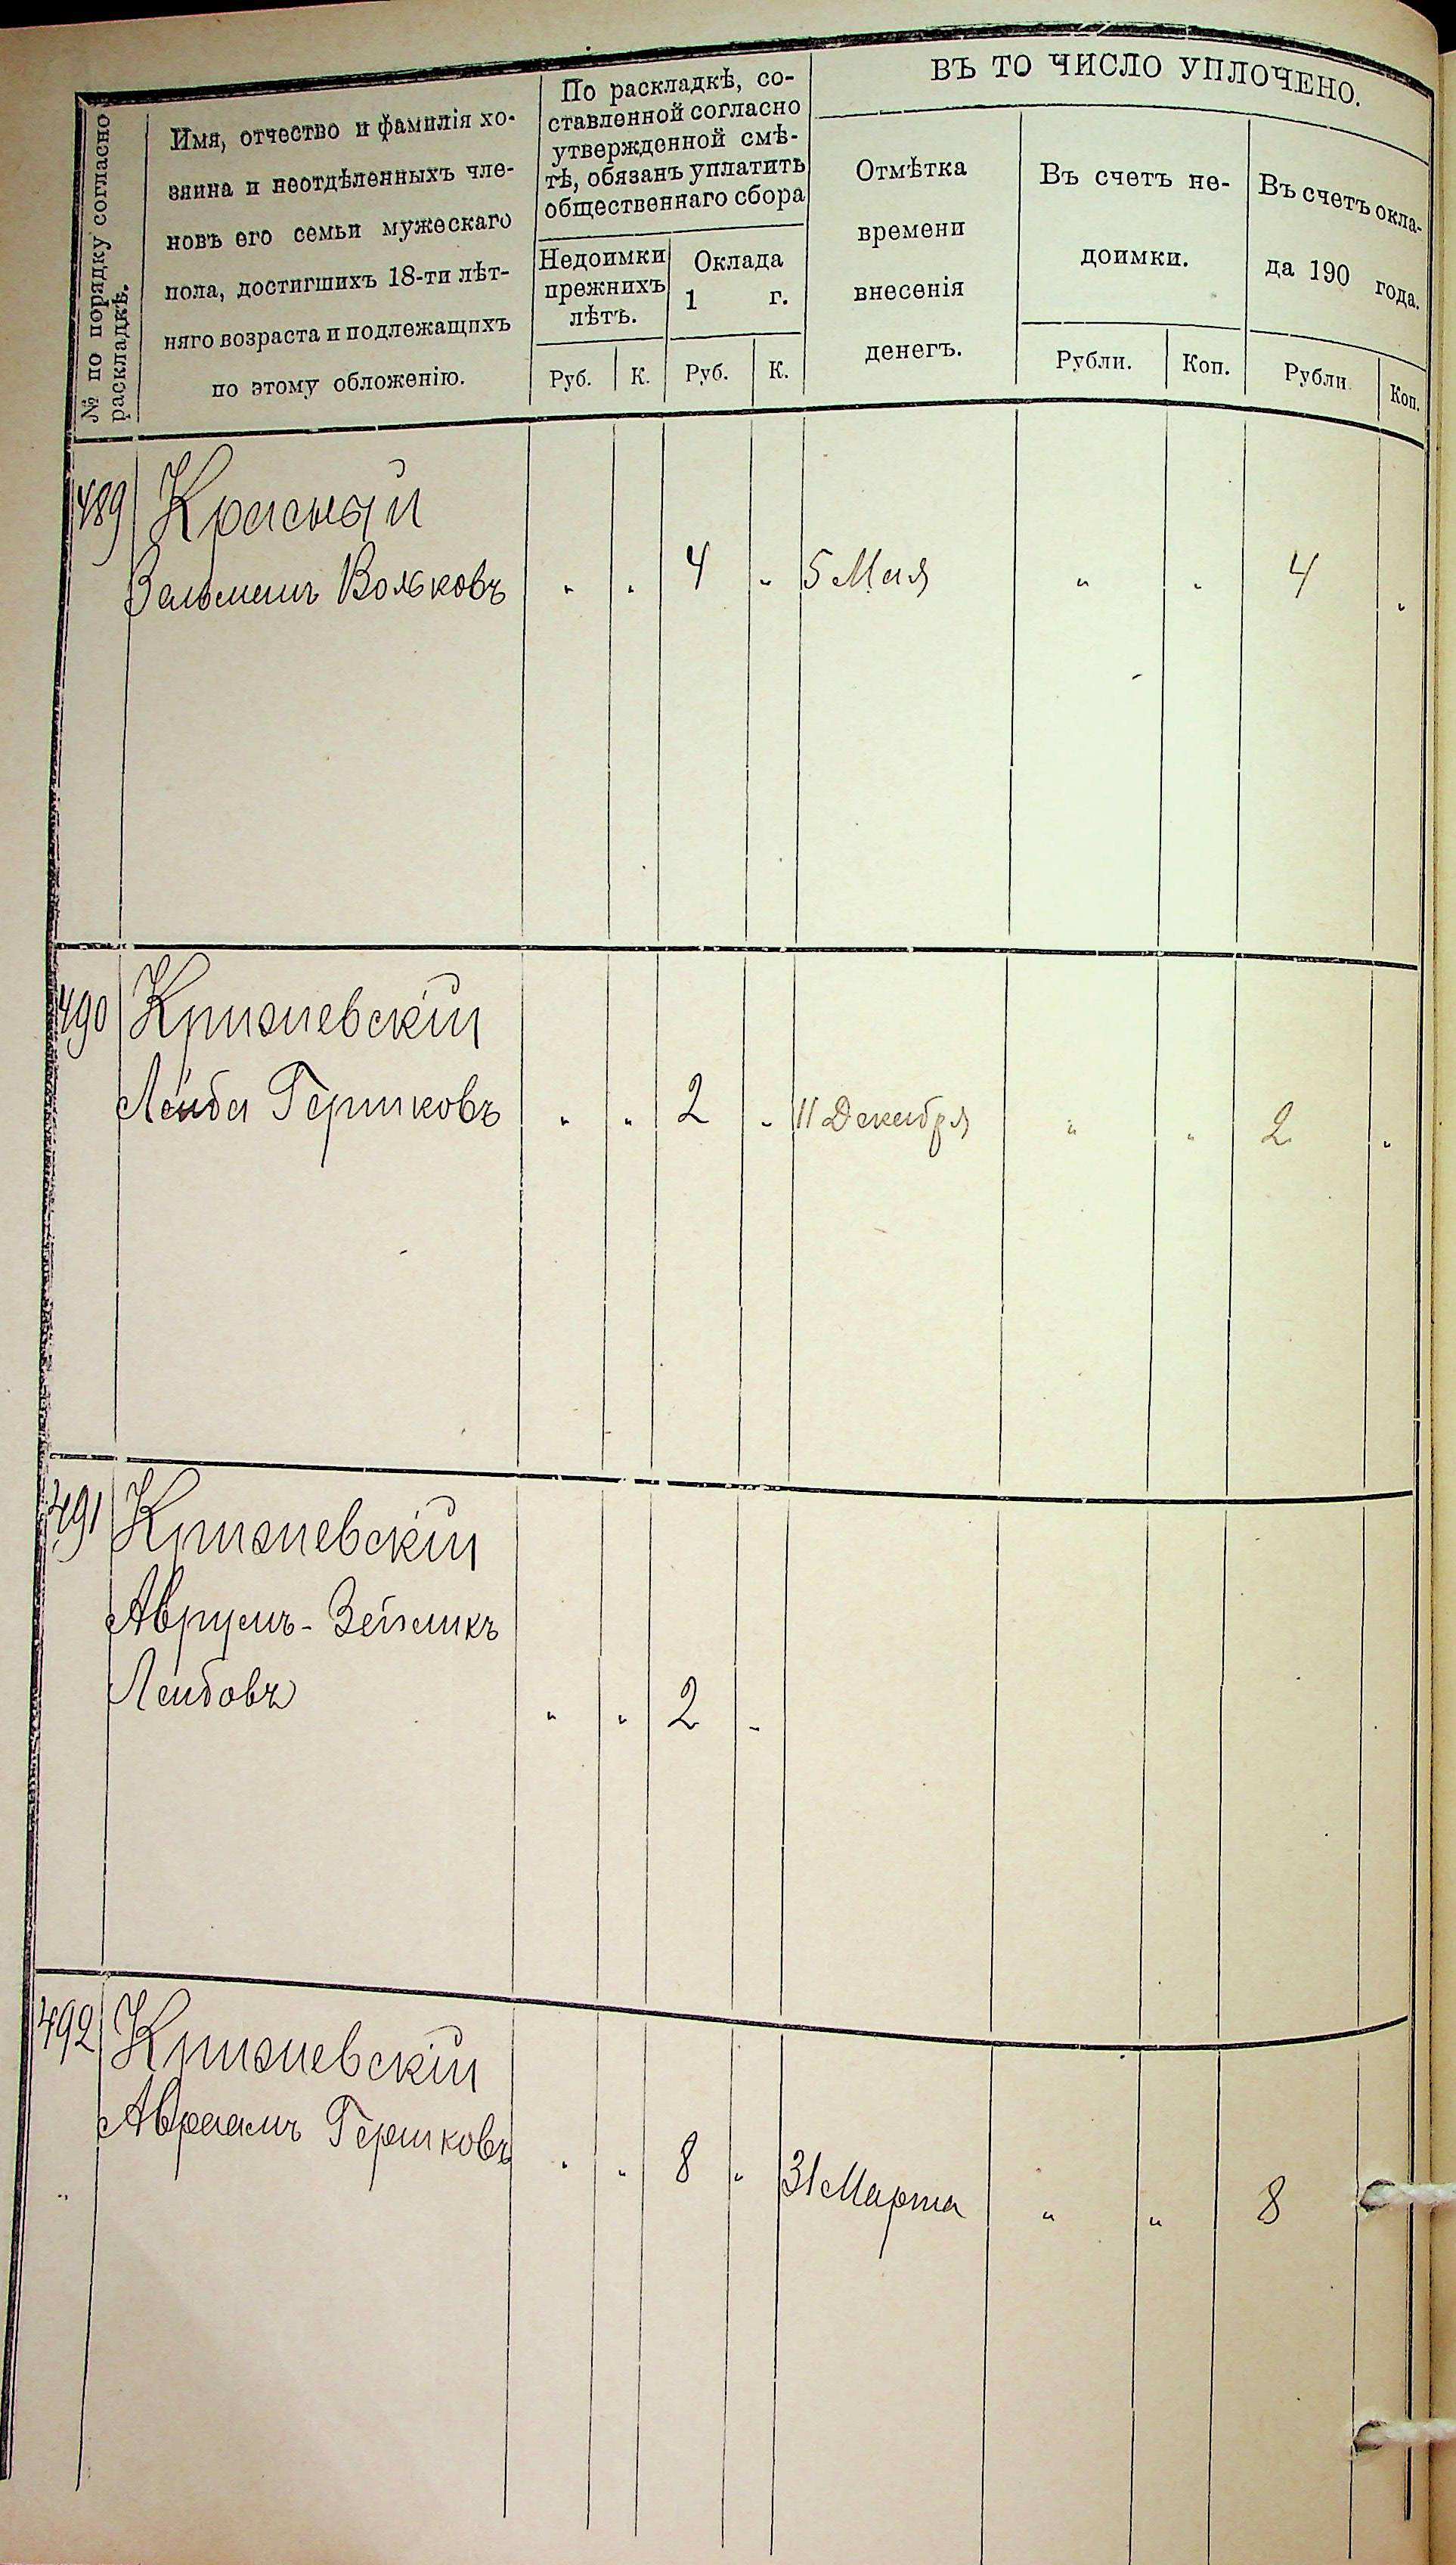 ВЪ ТО ЧИСЛО УПЛОЧЕНО.
№ по порядку согласно
раскладкѣ.
Имя, отчество и фамилія хо-
зяина и неотдѣленныхъ чле-
новъ его семьи мужескаго
пола, достигшихъ 18-ти лѣт-
няго возраста и подлежащихъ
по этому обложенію.
По раскладкѣ, со-
ставленной согласно
утвержденной смѣ-
тѣ, обязанъ уплатить
общественнаго сбора
Недоимки
прежнихъ
лѣтъ.
Оклада
1 г.
Руб. К. Руб. К.
Отмѣтка
времени
внесенія
денегъ.
Въ счетъ не-
доимки.
Рубли. Коп.
Въ счетъ окла-
да 190 года.
Рубли Коп.
489 Красный
Зальманъ Вольковъ " " 4 " 5 Мая " " 4 "
490 Кришевскій
Лейба Гершковъ " " 2 " 11 Декабря " " 2 "
491 Кришевскій
Аврумъ-Зейликъ
Лейбовъ " " 2 "
492 Кришевскій
Авраамъ Гершковъ " " 8 " 31 Марта " " 8